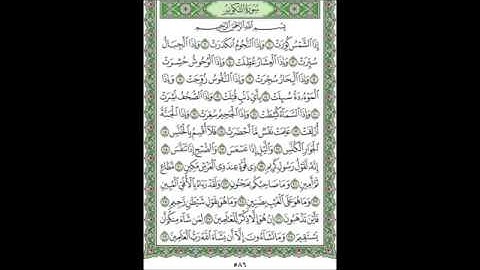 سُورَةُ التَّكْوِيرِ
بِسْمِ اللَّهِ الرَّحْمَٰنِ الرَّحِيمِ
إِذَا الشَّمْسُ كُوِّرَتْ ١ وَإِذَا النُّجُومُ انكَدَرَتْ ٢ وَإِذَا الْجِبَالُ
سُيِّرَتْ ٣ وَإِذَا الْعِشَارُ عُطِّلَتْ ٤ وَإِذَا الْوُحُوشُ حُشِرَتْ
٥ وَإِذَا الْبِحَارُ سُجِّرَتْ ٦ وَإِذَا النُّفُوسُ زُوِّجَتْ ٧ وَإِذَا
الْمَوْءُودَةُ سُئِلَتْ ٨ بِأَيِّ ذَنبٍ قُتِلَتْ ٩ وَإِذَا الصُّحُفُ نُشِرَتْ
١٠ وَإِذَا السَّمَاءُ كُشِطَتْ ١١ وَإِذَا الْجَحِيمُ سُعِّرَتْ ١٢ وَإِذَا الْجَنَّةُ
أُزْلِفَتْ ١٣ عَلِمَتْ نَفْسٌ مَّا أَحْضَرَتْ ١٤ فَلَا أُقْسِمُ بِالْخُنَّسِ ١٥
الْجَوَارِ الْكُنَّسِ ١٦ وَاللَّيْلِ إِذَا عَسْعَسَ ١٧ وَالصُّبْحِ إِذَا تَنَفَّسَ ١٨
إِنَّهُ لَقَوْلُ رَسُولٍ كَرِيمٍ ١٩ ذِي قُوَّةٍ عِندَ ذِي الْعَرْشِ مَكِينٍ ٢٠ مُّطَاعٍ
ثَمَّ أَمِينٍ ٢١ وَمَا صَاحِبُكُم بِمَجْنُونٍ ٢٢ وَلَقَدْ رَآهُ بِالْأُفُقِ الْمُبِينِ
٢٣ وَمَا هُوَ عَلَى الْغَيْبِ بِضَنِينٍ ٢٤ وَمَا هُوَ بِقَوْلِ شَيْطَانٍ رَّجِيمٍ ٢٥
فَأَيْنَ تَذْهَبُونَ ٢٦ إِنْ هُوَ إِلَّا ذِكْرٌ لِّلْعَالَمِينَ ٢٧ لِمَن شَاءَ مِنكُمْ أَن
يَسْتَقِيمَ ٢٨ وَمَا تَشَاءُونَ إِلَّا أَن يَشَاءَ اللَّهُ رَبُّ الْعَالَمِينَ ٢٩
٥٨٦